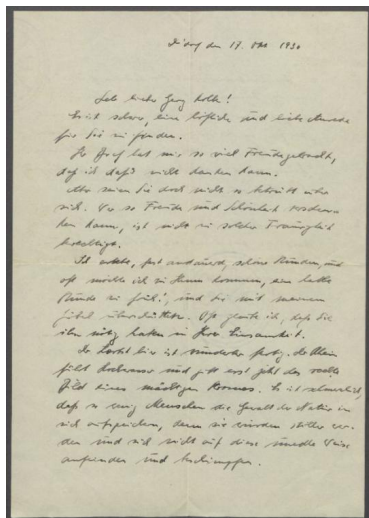 D'dorf den 17. Okt 1930
Sehr lieber Georg Kolbe!
Es ist schwer, eine höfliche und liebe Anrede
für Sie zu finden.
Ihr Brief hat mir so viel Freude gebracht,
daß ich dafür nicht danken kann.
Aber seien Sie doch nicht so betrübt über
sich. Wer so Freude und Schönheit
kann, ist nicht zu solcher Traurigkeit
berechtigt.
Ich arbeite, fast andauernd, schöne Stunden, und
oft möchte ich zu Ihnen kommen, eine halbe
Stunde zu früh, und Sie mit meinem
Jubel überschütten. Oft glaube ich, daß Sie
ihn nötig hätten in Ihrer Einsamkeit.
Der Herbst hier ist wunderbar Der Rhein
führt Hochwasser und gibt erst jetzt das
Bild eines mächtigen Stromes. Es ist
daß so wenig Menschen die Gewalt der Natur in
sich aufspeichern, denn sie würden stiller wer-
den und sich nicht auf diese unedle Weise
und beschimpfen.